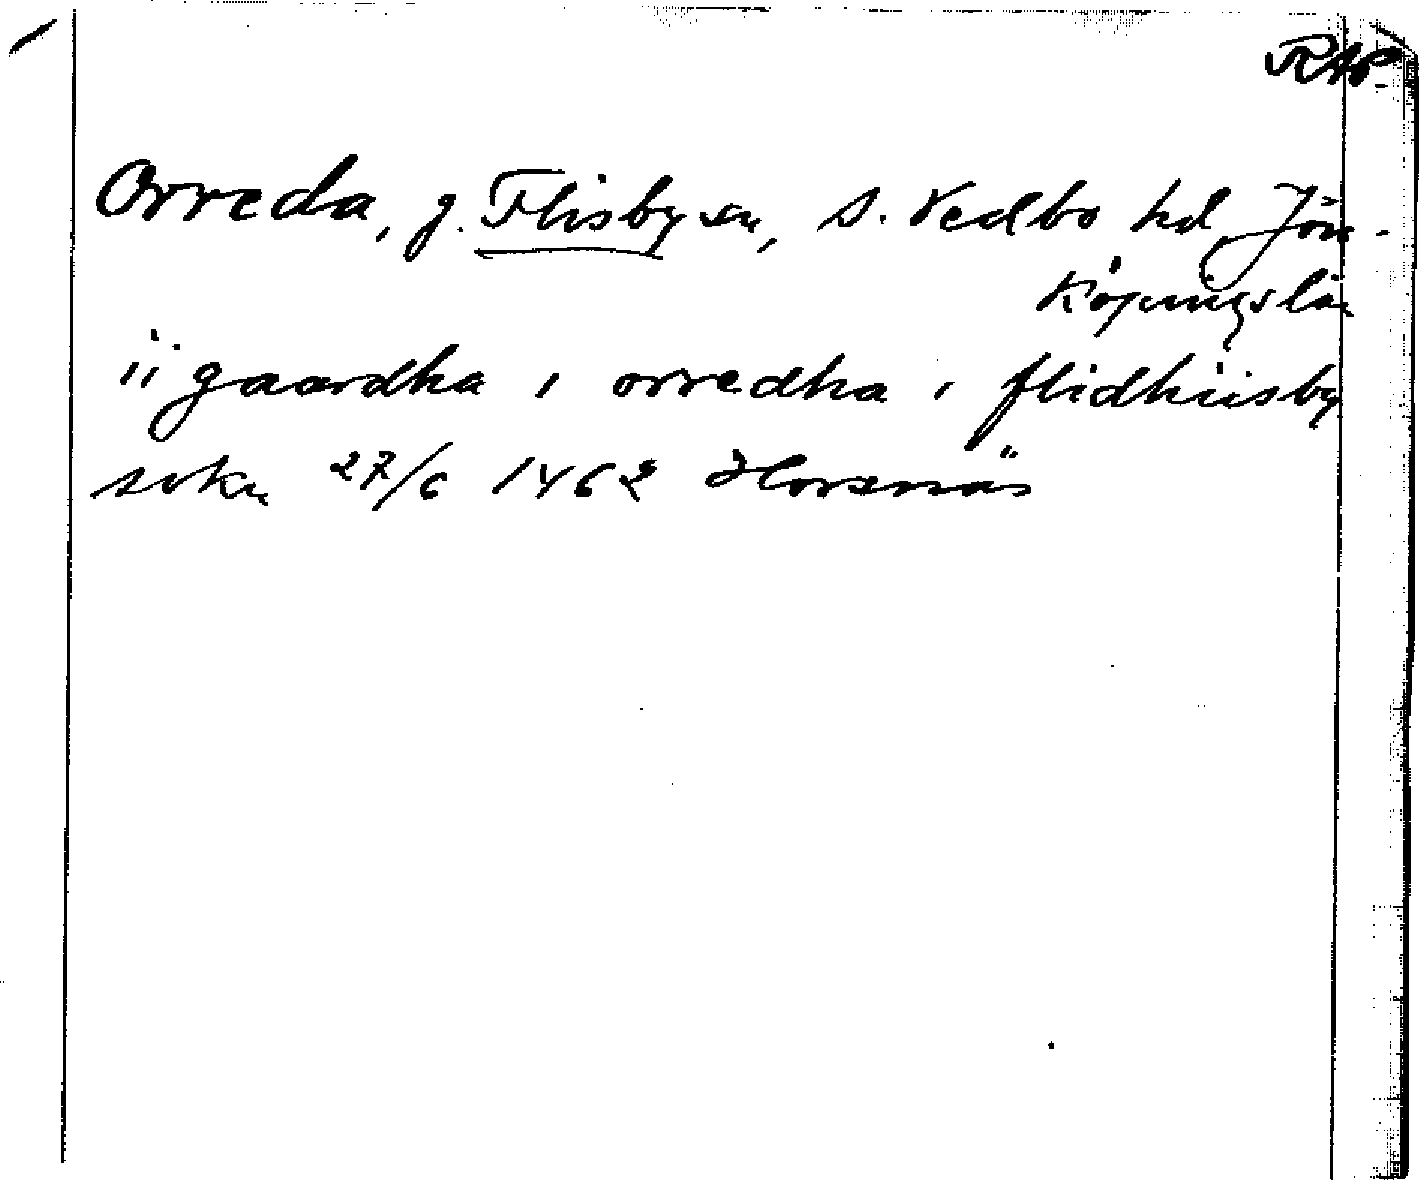 RAP
Orreda, g. Flisby sn, S. Vedbo hd, Jön-
köpings län
ii gaardha i orredha i flidhiisby
sokn 27/6 1462 Horsnäs